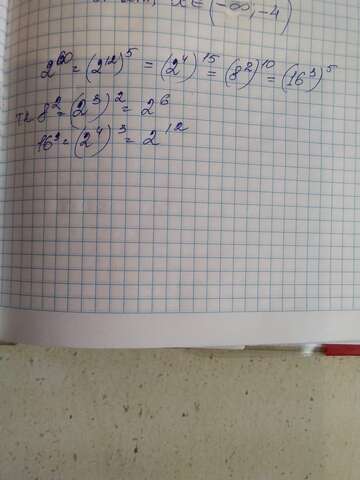 x ∈ (-∞, -4)
2⁶⁰ = (2¹²)⁵ = (2⁴)¹⁵ = (8²)¹⁰ = (16³)⁵
тк 8² = (2³)² = 2⁶
16³ = (2⁴)³ = 2¹²